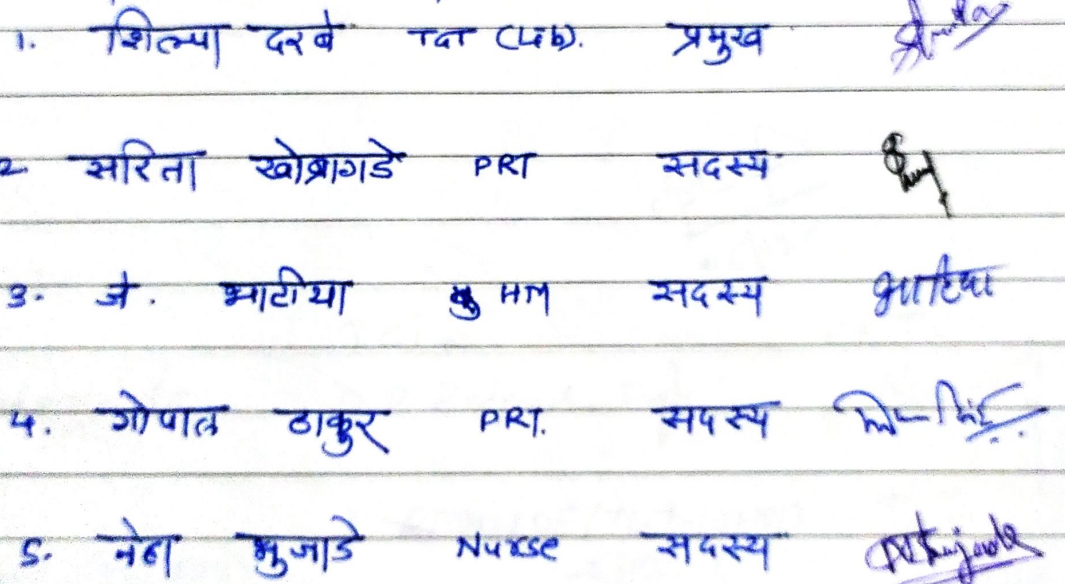 1. शिल्पा दरबे TGT (Lib). प्रमुख
2 सरिता खोब्रागडे PRT सदस्य
3. जे. भाटीया HM सदस्य भाटिया
4. गोपाल ठाकुर PRT. सदस्य
5. नेहा भुजाडे Nurse सदस्य